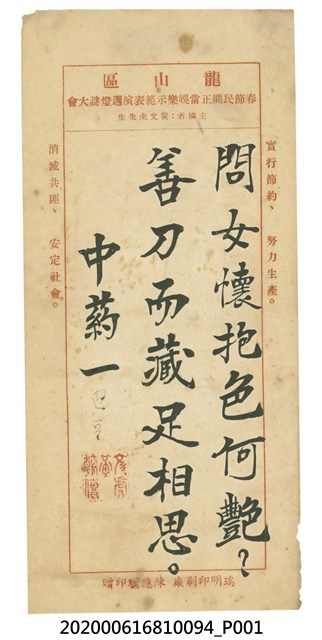 龍山區
春節民間正當娛樂示範表演週燈謎大會
主編者：黃文虎先生
實行節約、　努力生產。
問女懷抱色何艷？
善刀而藏足相思。
中药一
巴豆
消滅共匪、　安定社會。
瑞明印刷廠 陳應騋印贈
202000616810094_P001